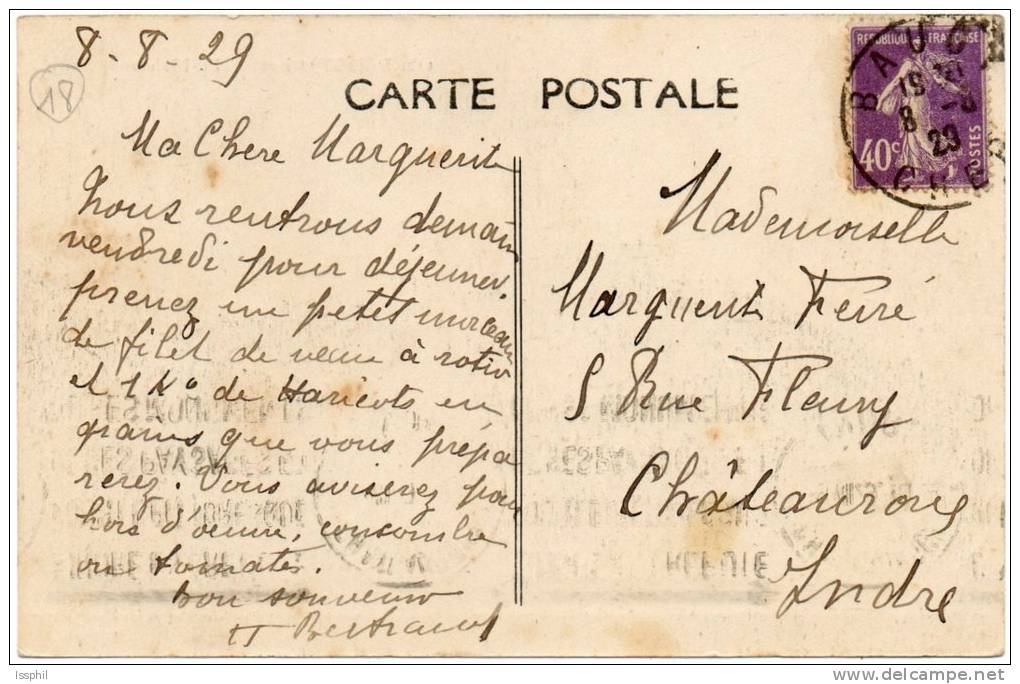 8-8-29
18
CARTE POSTALE
REPUBLIQUE FRANÇAISE
40c
POSTES
8 -8
29
CHER
Ma Chere Marguerite
Nous rentrons demain
vendredi pour déjeuner.
prenez un petit morceau
de filet de veau à rotir
et 1 Ko de Haricots en
grains que vous prépa
rerez. Vous aviserez pour
hors d'oeuvre, concombre
ou tomates.
bon souvenir
Bertrand
Mademoiselle
Marguerite Ferré
5 Rue Fleury
Châteauroux
Indre
Issphil
delcampe.net